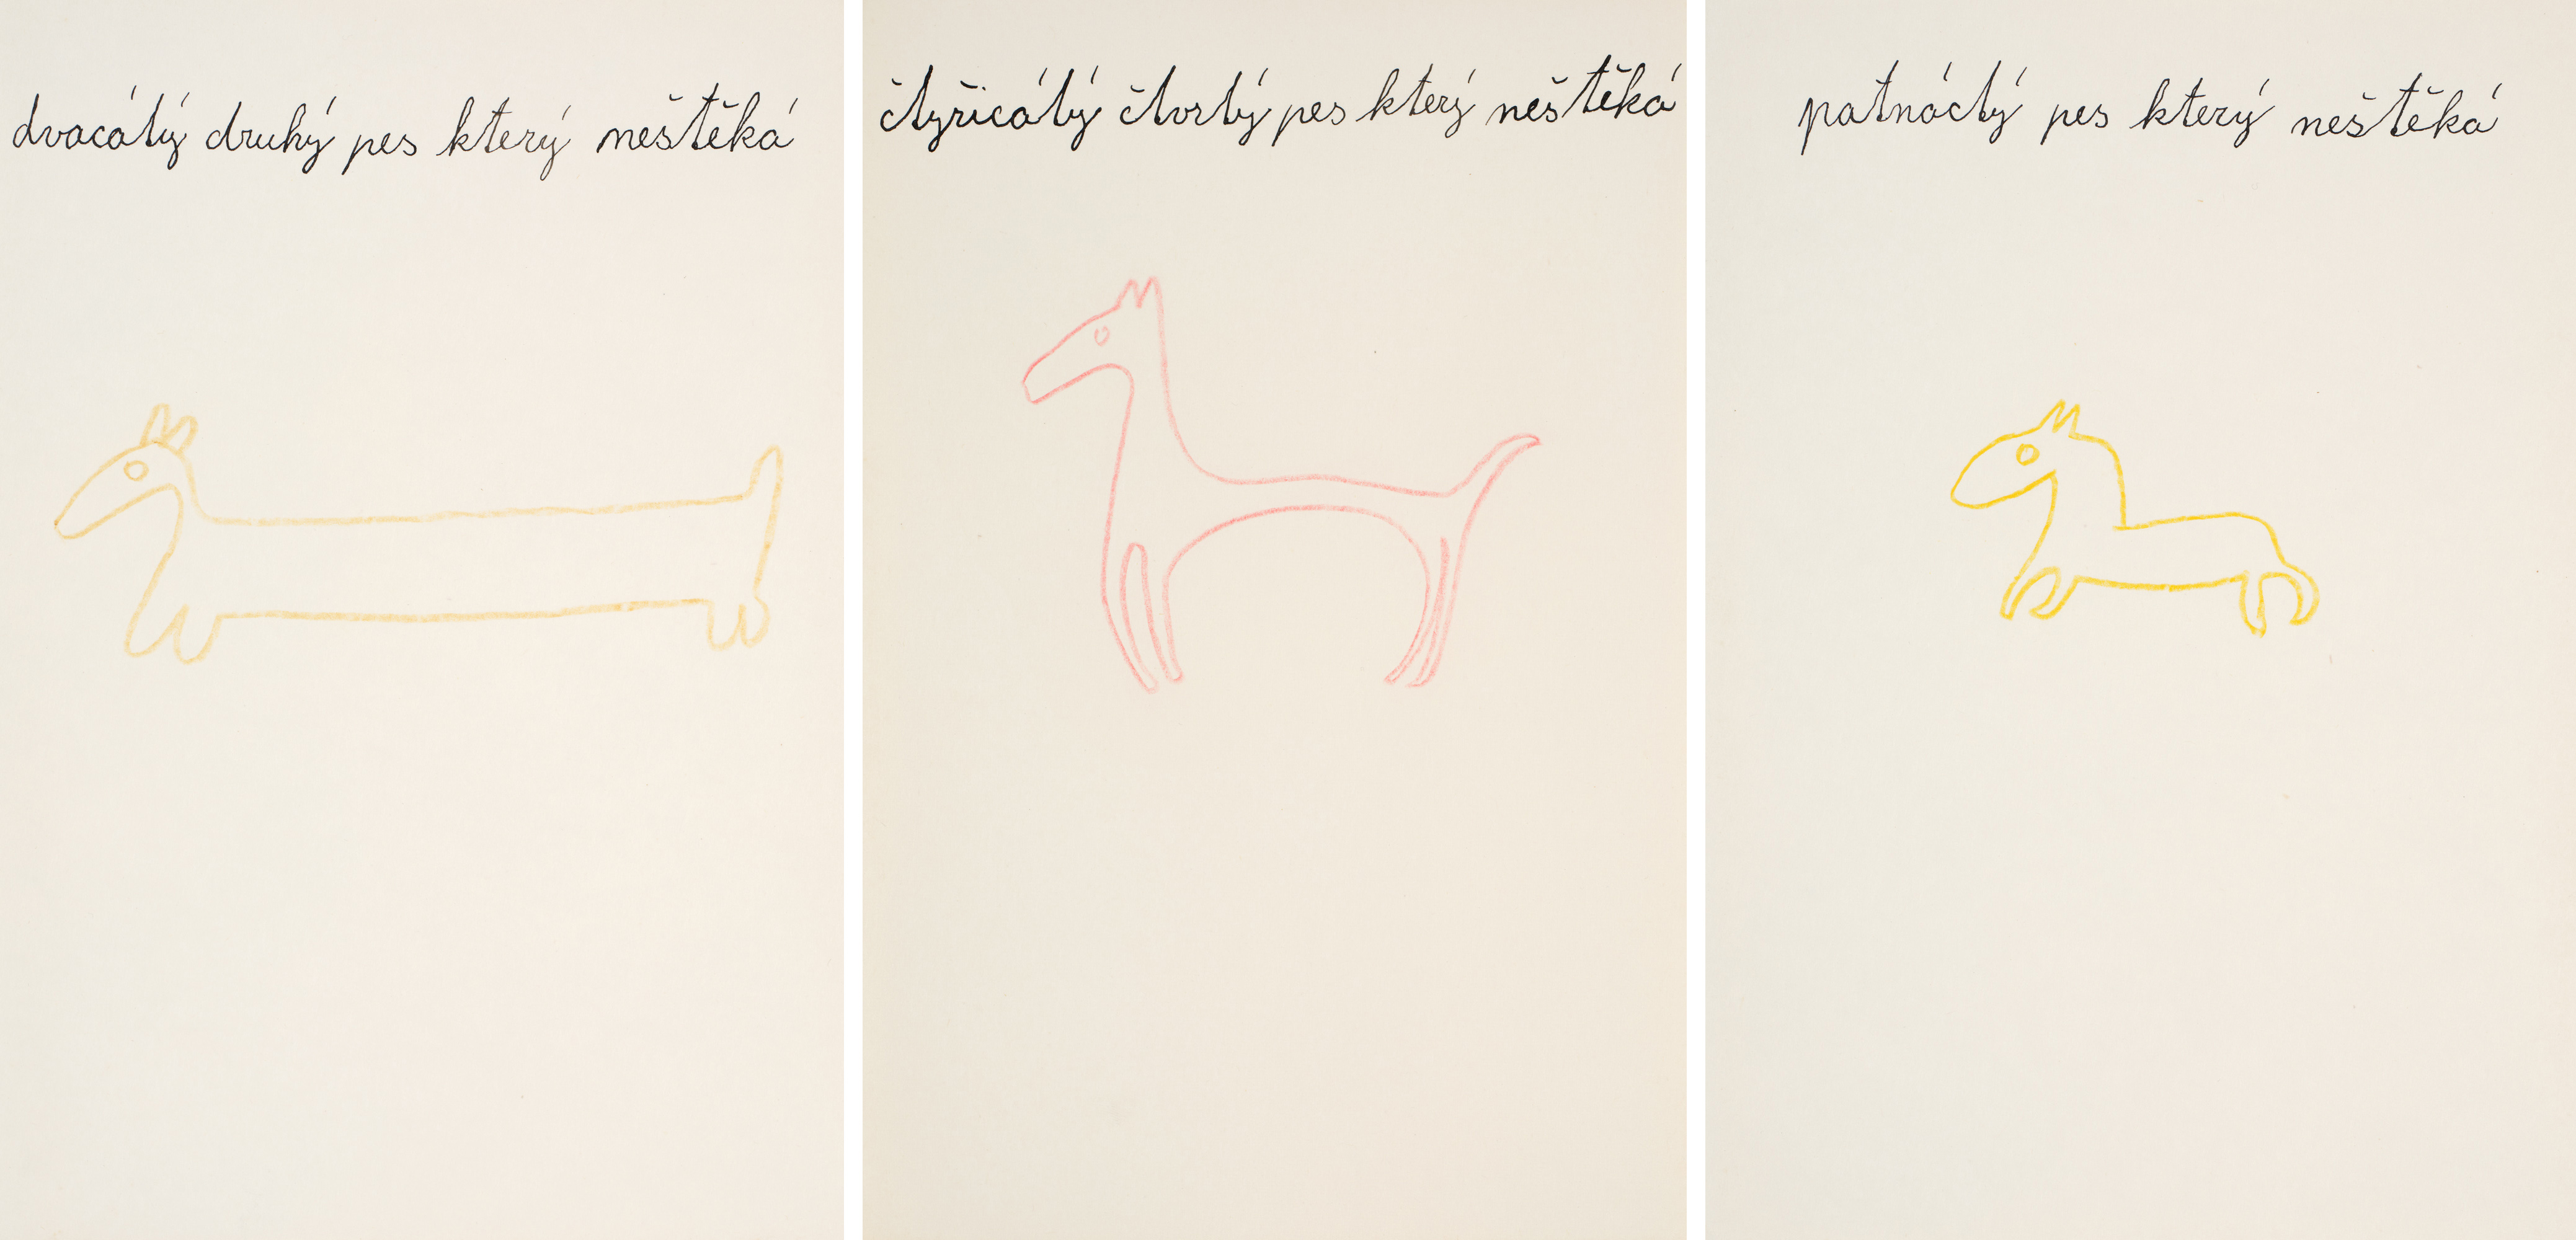 dvacátý druhý pes který neštěká
čtyřicátý čtvrtý pes který neštěká
patnáctý pes který neštěká